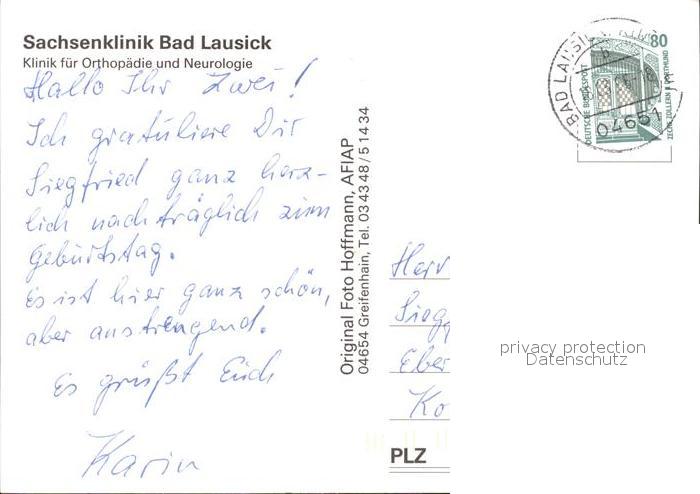 Sachsenklinik Bad Lausick
Klinik für Orthopädie und Neurologie
Hallo Ihr Zwei!
Ich gratuliere Dir
Siegfried ganz herz-
lich nachträglich zum
Geburtstag.
Es ist hier ganz schön,
aber anstrengend.
Es grüßt Euch
Karin
Original Foto Hoffmann, AFIAP
04654 Greifenhain, Tel. 03 43 48 / 5 14 34
BAD LAUSICK
04651
80
DEUTSCHE BUNDESPOST
ZECHE ZOLLERN II DORTMUND
Herr
Sieg
Eber
Ko
PLZ
privacy protection
Datenschutz